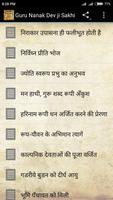 8:28 PM
Guru Nanak Dev ji Sakhi
निराकार उपासना ही फलीभूत होती है
निर्विघ्न प्रीति भोज
ज्योति स्वरूप प्रभु का अनुभव
मन हाथी, गुरू शब्द कुण्डा रूप
हरिनाम रूपी धन अर्जित करने की प्रेरणा
काल्पनिक देवताओं की पूजा वर्जित
भूमि पँचायत को मिली